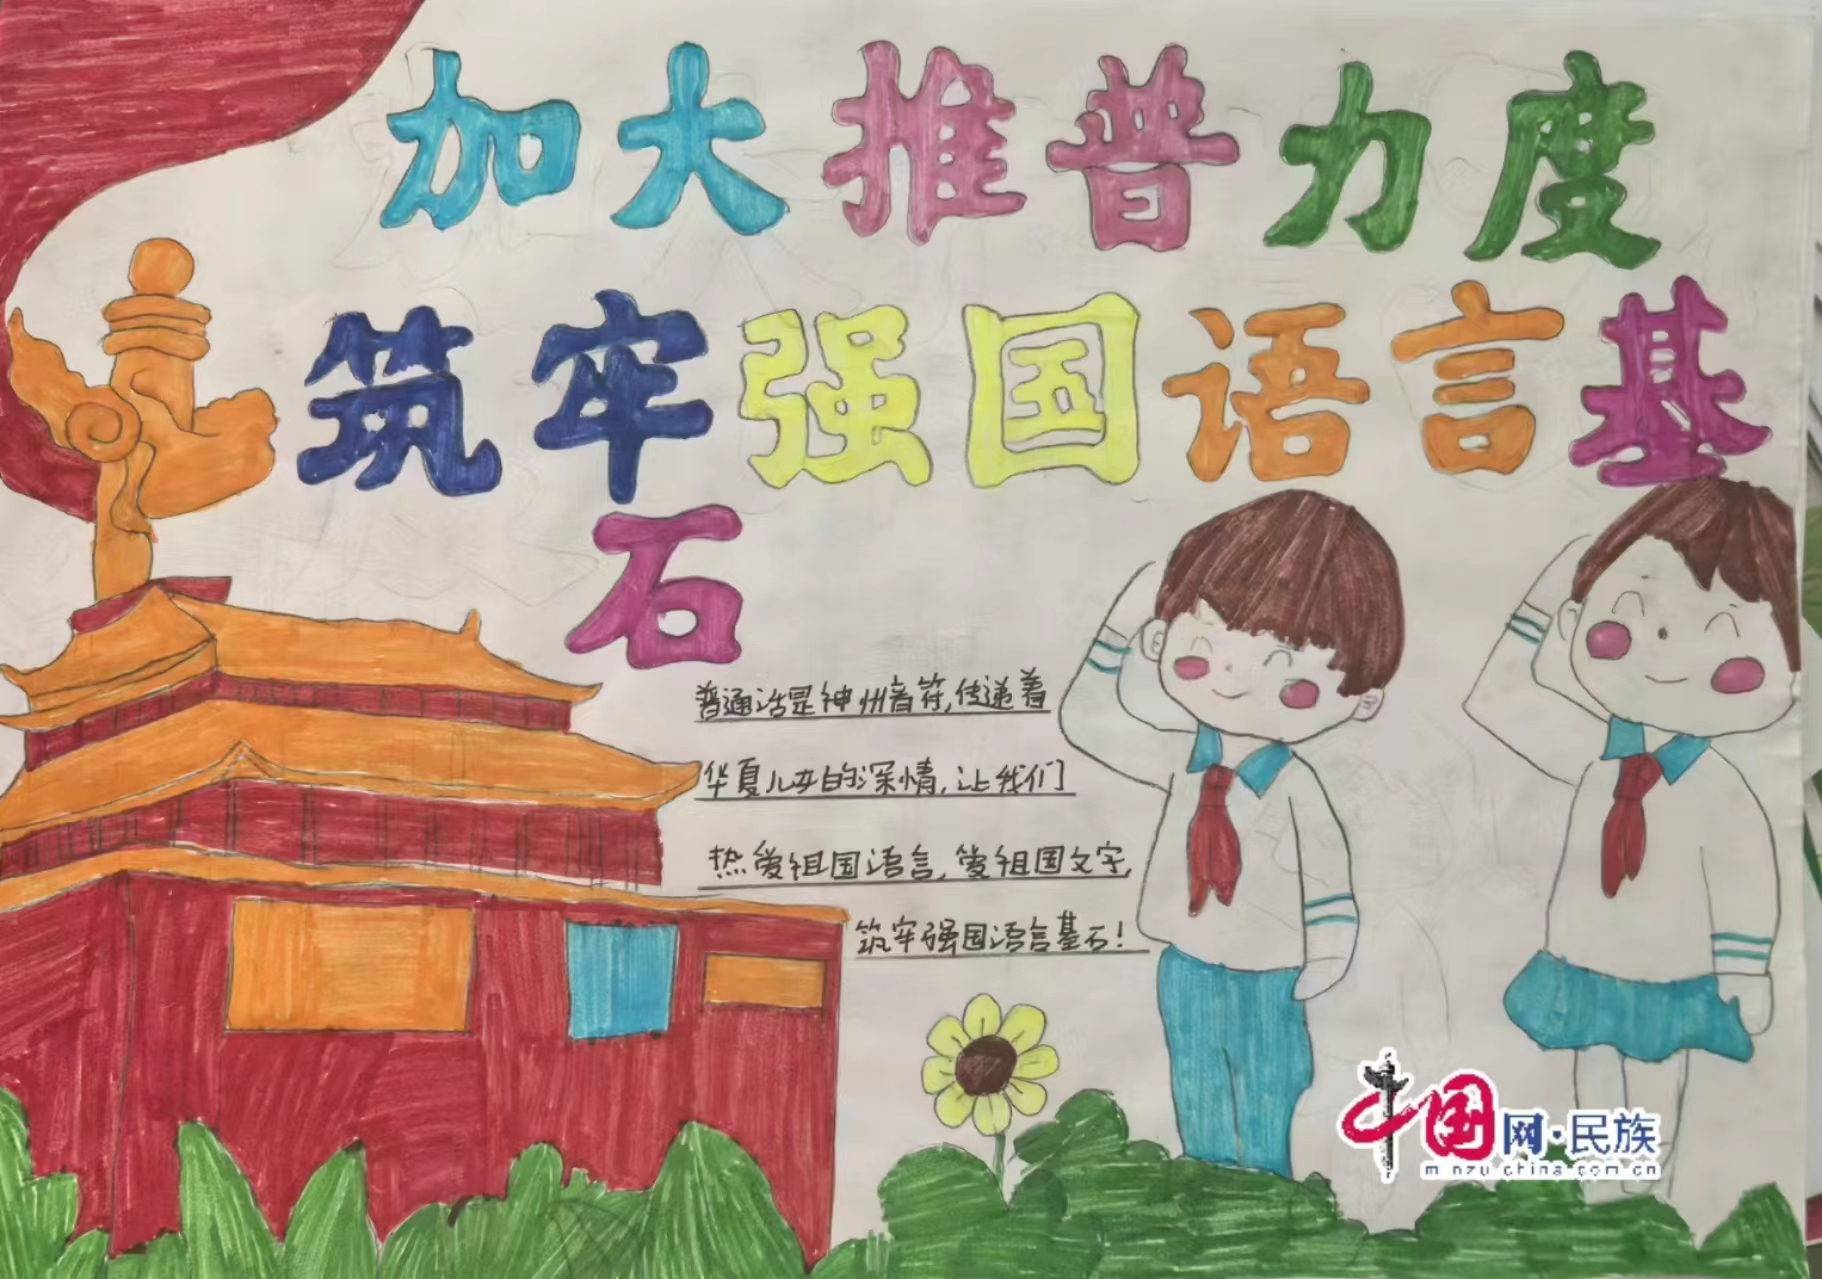 加大推普力度
筑牢强国语言基
石
普通话是神州音符,传递着
华夏儿女的深情,让我们
热爱祖国语言,爱祖国文字,
筑牢强国语言基石!
中国网·民族
minzu.china.com.cn